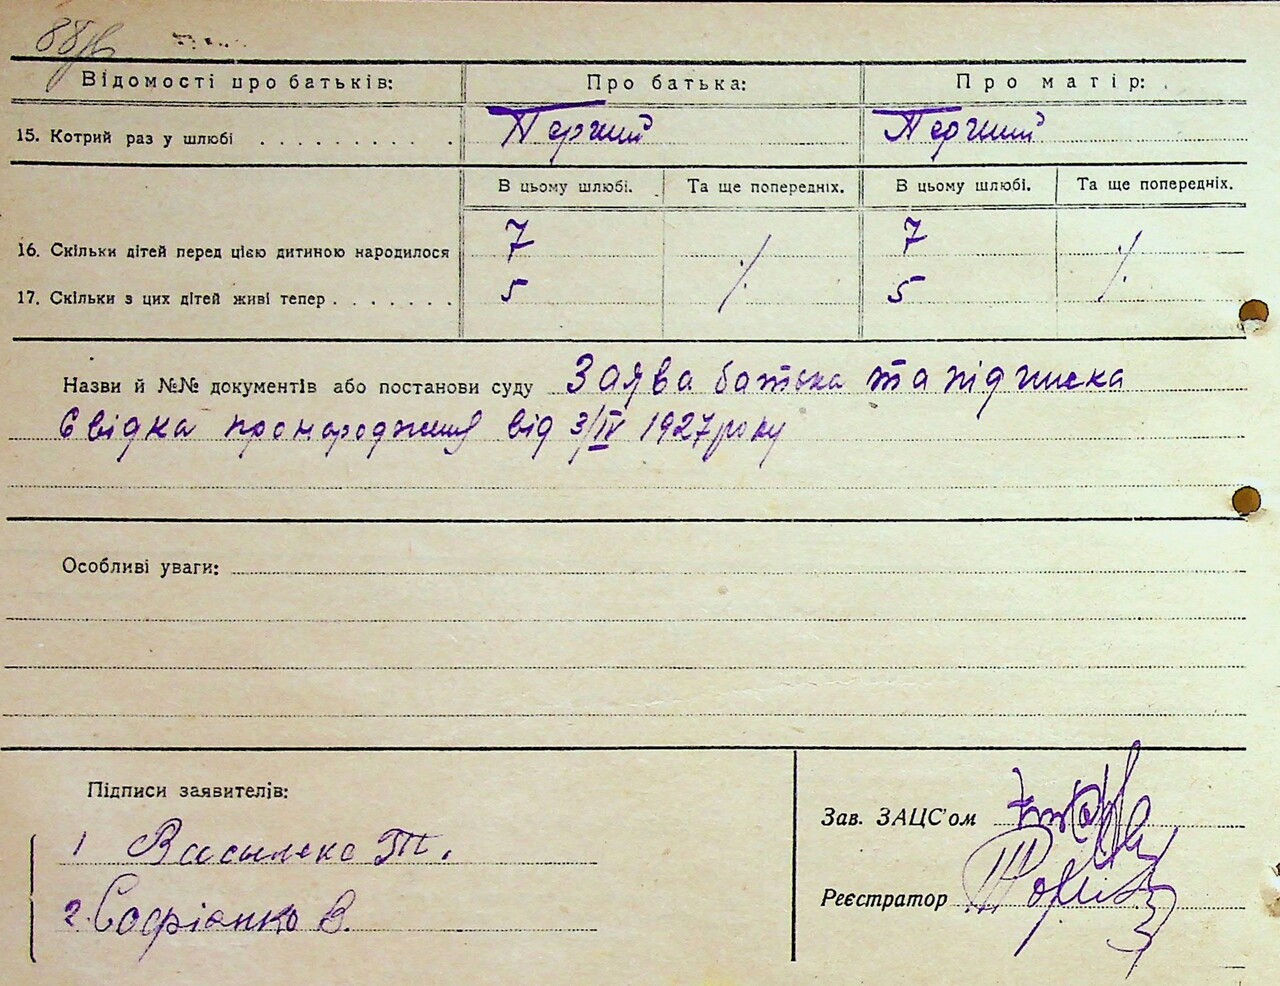 88зв
Відомості про батьків: Про батька: Про матір:
15. Котрий раз у шлюбі . . . . . . . . . Перший Перший
В цьому шлюбі. Та ще попередніх. В цьому шлюбі. Та ще попередніх.
16. Скільки дітей перед цією дитиною народилося 7 ./. 7 ./.
17. Скільки з цих дітей живі тепер . . . . . . . 5 5
Назви й №№ документів або постанови суду Заява батька та підписка
свідка про народження від 3/IV 1927 року
Особливі уваги:
Підписи заявителів:
1 Василека Т.
2. Софієнко В.
Зав. ЗАЦС'ом
Реєстратор